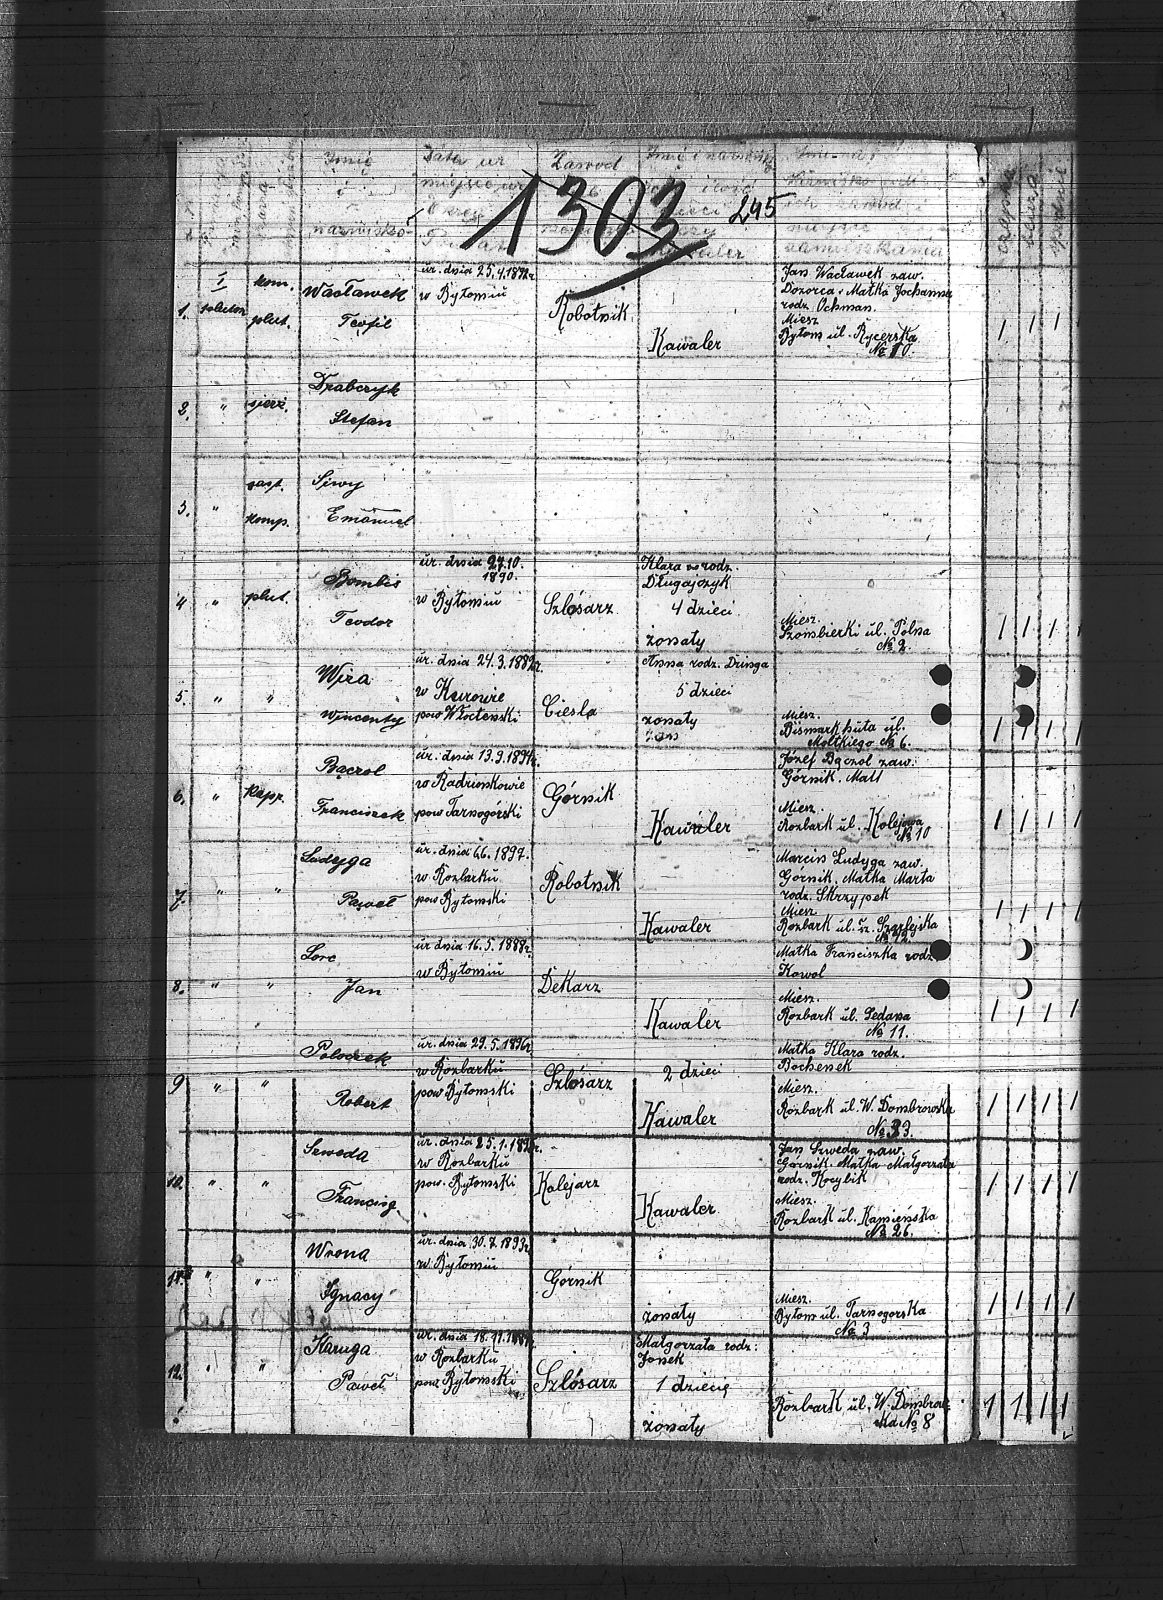 Imię
i
nazwisko
Data ur
miejsce ur
Zawód
1303
245
zamieszkania
1.
I
pluton
kom.
plut.
Wacławek
Teofil
ur. dnia 25.4.1892r
w Bytomiu
Robotnik
Kawaler
Jan Wacławek zaw.
Dozorca. Matka Jochanna
rodz. Ochman.
Miesz
Bytom ul. Rycerska
№ 10.
2.
"
sierż.
Drabczyk
Stefan
3.
"
zast.
komp.
Siwy
Emanuel
4
"
plut.
Bombis
Teodor
ur. dnia 27.10.
1890.
w Bytomiu
Szlósarz
Klara z rodz.
Długajczyk
4 dzieci
żonaty
Miesz.
Szombierki ul. Polna
№ 2.
5.
"
"
Wiza
Wincenty
ur. dnia 24.3.1882r.
w Kurowie
pow
Ciesla
Anna rodz. Dringa
5 dzieci
żonaty
Miesz.
Bismarkhuta ul.
Moltkiego № 6.
6.
"
Kapr.
Franciszek
ur. dnia 13.9.1894r.
w Radzionkowie
pow Tarnogórski
Górnik
Kawaler
Józef
zaw.
Górnik. Matt
Miesz.
Rozbark ul. Kolejowa
№ 10
7.
"
"
Ludyga
Paweł
ur. dnia 6.6.1897.
w Rozbarku
pow Bytomski
Robotnik
Kawaler
Marcin Ludyga zaw.
Górnik. Matka Marta
rodz. Skrzypek
Miesz
Rozbark ul.
№ 12.
8.
"
"
Lorc
Jan
ur dnia 16.5.1888r.
w Bytomiu
Dekarz
Kawaler
Matka Franciszka rodz.
Kowol
Miesz.
Rozbark ul. Sedana
№ 11.
9
"
"
Poloczek
Robert
ur. dnia 29.5.1896r
w Rozbarku
pow Bytomski
Szlósarz
2 dzieci
Kawaler
Matka Klara rodz.
Bochenek
Miesz.
Rozbark ul. W. Dombrowska
№ 33.
10.
"
"
Szweda
Francisz
ur. dnia 25.1.
w Rozbarku
pow. Bytomski
Kolejarz
Kawaler
Jan Szweda zaw.
Górnik. Matka Małgorzata
rodz. Kocybik
Miesz.
Rozbark ul. Kamieńska
№ 26.
11.
"
"
Wrona
Ignacy
ur. dnia 30.7.1893r
w Bytomiu
Górnik
żonaty
Miesz.
Bytom ul. Tarnogorska
№ 3
12.
"
"
Karuga
Paweł
ur. dnia 18.11.
w Rozbarku
pow Bytomski
Szlósarz
Małgorzata rodz:
Jonek
1 dziecię
żonaty
Rozbark ul. W. Dombrow-
ska № 8